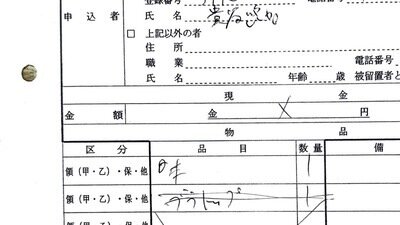 申込者
氏名
□ 上記以外の者
住所
職業 電話番号
氏名 年齢 歳 被留置者と
現金
金額 金 × 円
物品
区分 品目 数量 備
領(甲・乙)・保・他 1
領(甲・乙)・保・他 1
領(甲・乙)・保・他